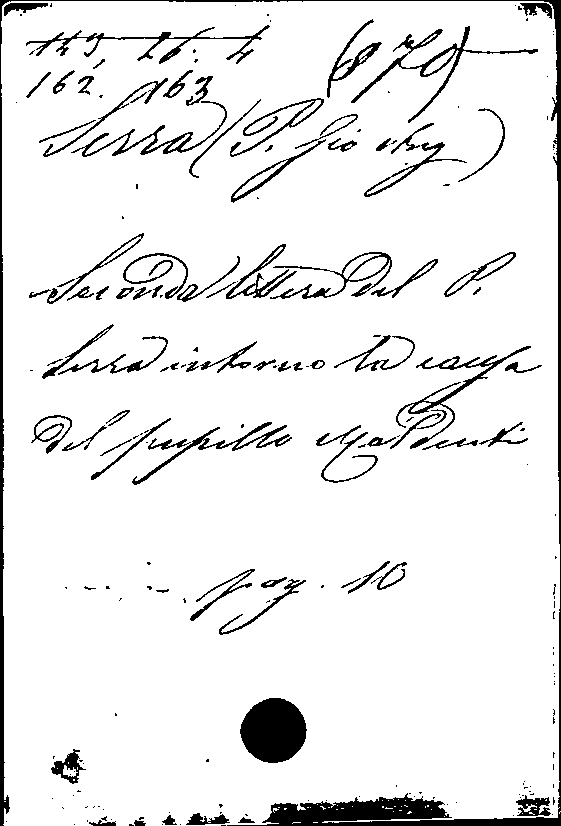 143, 26. 4 (870)
162. 163
Serra (P. Gio Ang)
Seconda lettera del P.
Serra intorno la causa
del pupillo Maldenti
pag. 10